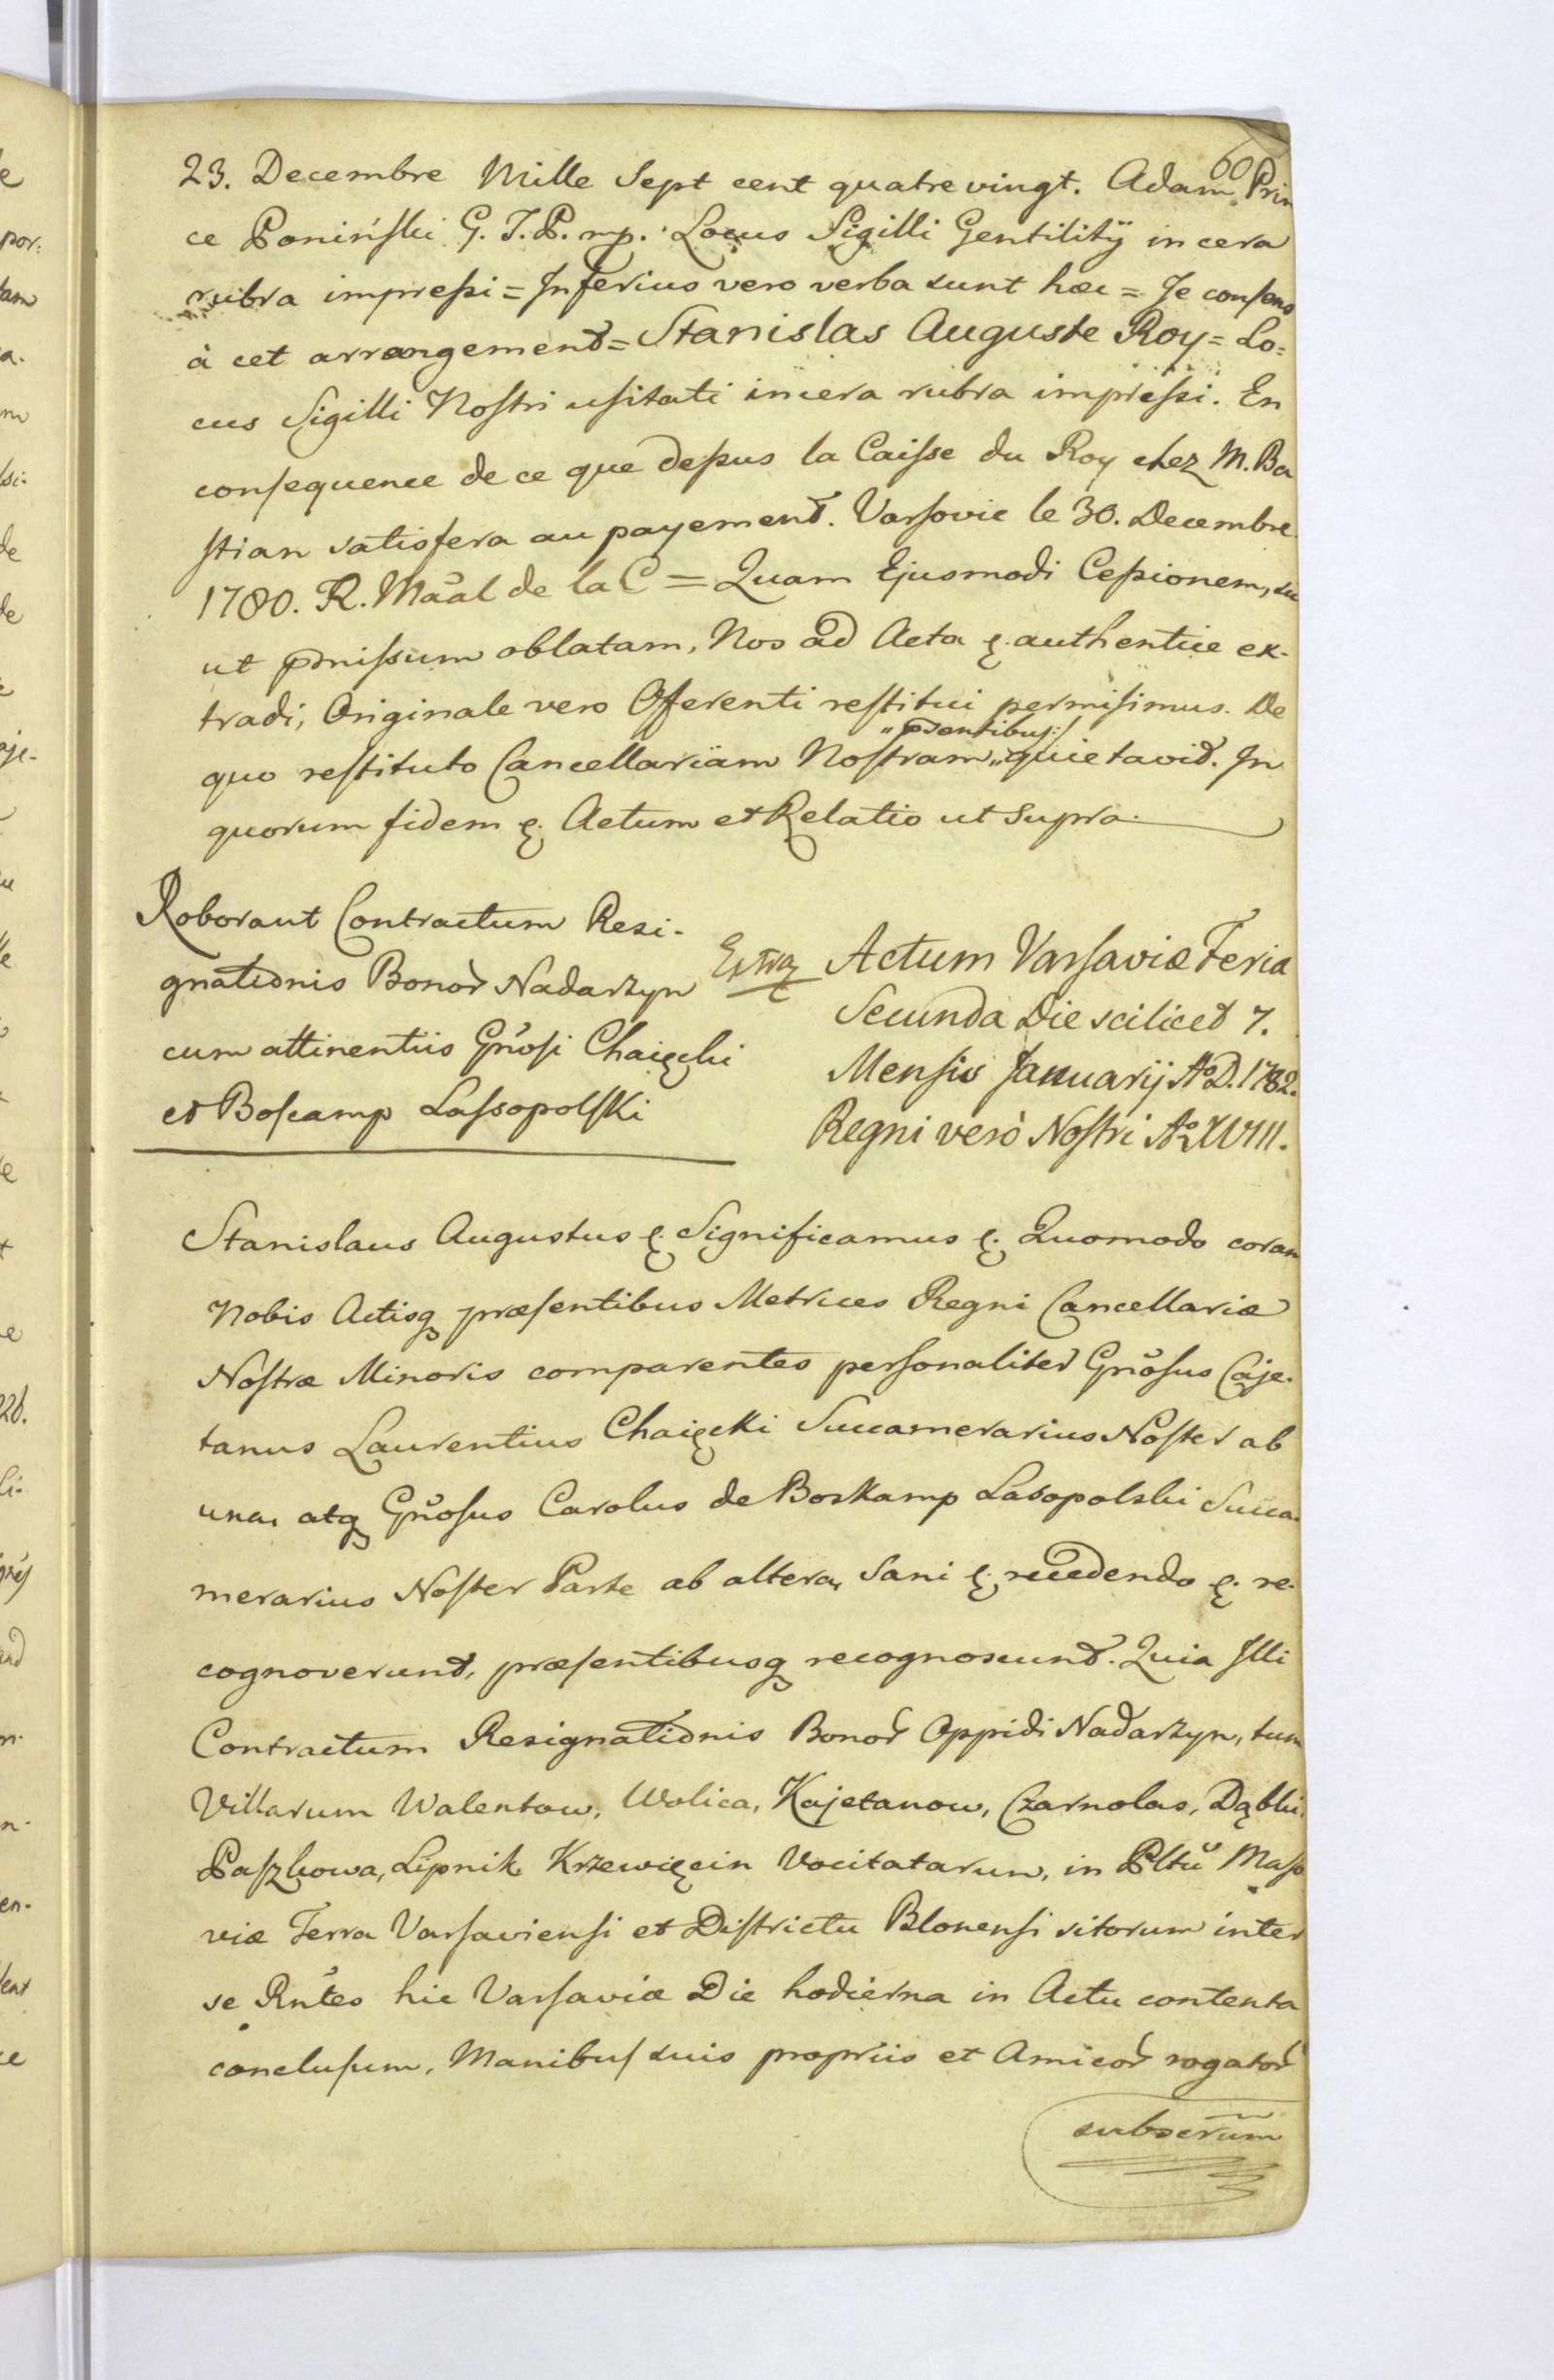 60
23. Decembre Mille Sept cent quatre vingt. Adam Prin
ce Poniński G. T. P. mp. Locus Sigilli Gentilitÿ in cera
rubra impressi = Inferius vero verba sunt hæc = Je consens
à cet arrangement = Stanislas Auguste Roy = Lo=
cus Sigilli Nostri usitati in cera rubra impressi. En
consequence de ce que dessus la Caisse du Roy chez M. Ba
stian satisfera au payement. Varsovie le 30. Decembre
1780. R. Maal de la C = Quam Ejusmodi Cessionem, su
ut pmissum oblatam, Nos ad Acta ę. authentice ex-
tradi, Originale vero Offerenti restitui permisimus. De
quo restituto Cancellariam Nostram „psentibus:/ quietavit. In
quorum fidem ę. Actum et Relatio ut supra.
Roborant Contractum Resi-
gnationis Bonor Nadarzyn
cum attinentiis Gnosi Chaięcki
et Boscamp Lassopolski
Extrag
Actum Varsaviæ Feria
Secunda Die scilicet 7.
Mensis Januarij Ao D. 1782.
Regni verò Nostri Ao XVIII.
Stanislaus Augustus ę. Significamus ę. Quomodo coram
Nobis Actisq præsentibus Metrices Regni Cancellariæ
Nostræ Minoris comparentes personaliter Gnosus Caje-
tanus Laurentius Chaięcki Succamerarius Noster ab
una, atq Gnosus Carolus de Boskamp Lasopolski Succa-
merarius Noster Parte ab altera, Sani ę. recedendo ę. re-
cognoverunt, præsentibusq recognoscunt. Quia Illi
Contractum Resignationis Bonor Oppidi Nadarzyn, tum
Villarum Walentow, Wolica, Kajetanow, Czarnolas, Dąbki,
Paszkowa, Lipnik Krzewięcin Vocitatarum, in Pltu Maso
viæ Terra Varsaviensi et Districtu Blonensi sitorum inter
se Rntes hic Varsaviæ Die hodierna in Actu contenta
conclusum, Manibus suis propriis et Amicor rogator
subscrum